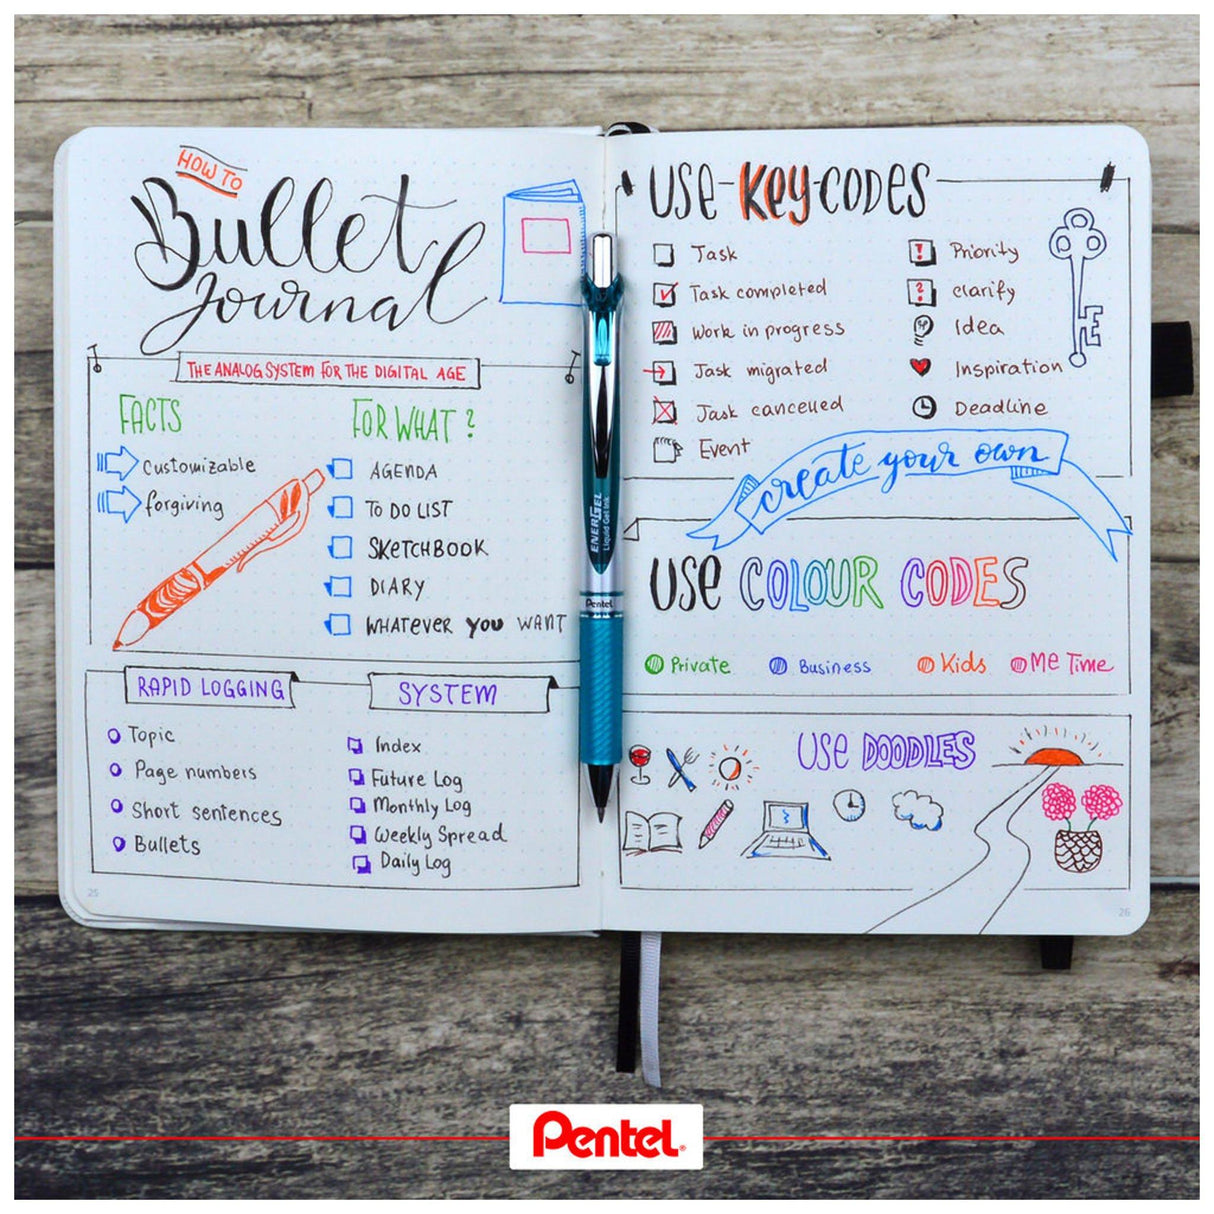 HOW TO
Bullet
Journal
THE ANALOG SYSTEM FOR THE DIGITAL AGE
FACTS
customizable
forgiving
FOR WHAT?
AGENDA
TO DO LIST
SKETCHBOOK
DIARY
WHATEVER YOU WANT
RAPID LOGGING
Topic
Page numbers
Short sentences
Bullets
SYSTEM
Index
Future Log
Monthly Log
Weekly Spread
Daily Log
25
ENERGEL
Liquid Gel Ink
Pentel
USE-KEY-CODES
Task
Task completed
Work in progress
Task migrated
Task cancelled
Event
Priority
clarify
Idea
Inspiration
Deadline
create your own
USE COLOUR CODES
Private Business Kids Me Time
USE DOODLES
26
Pentel®